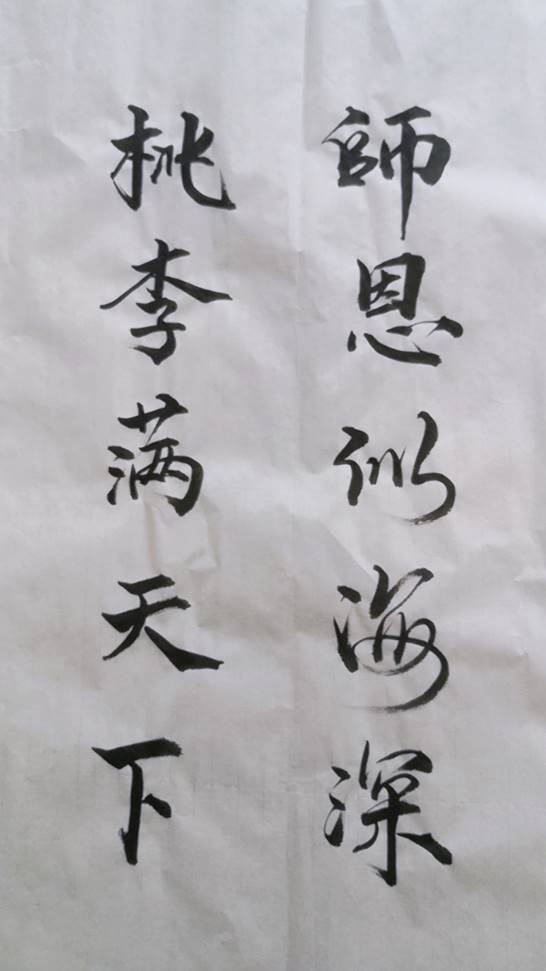 師恩似海深
桃李满天下